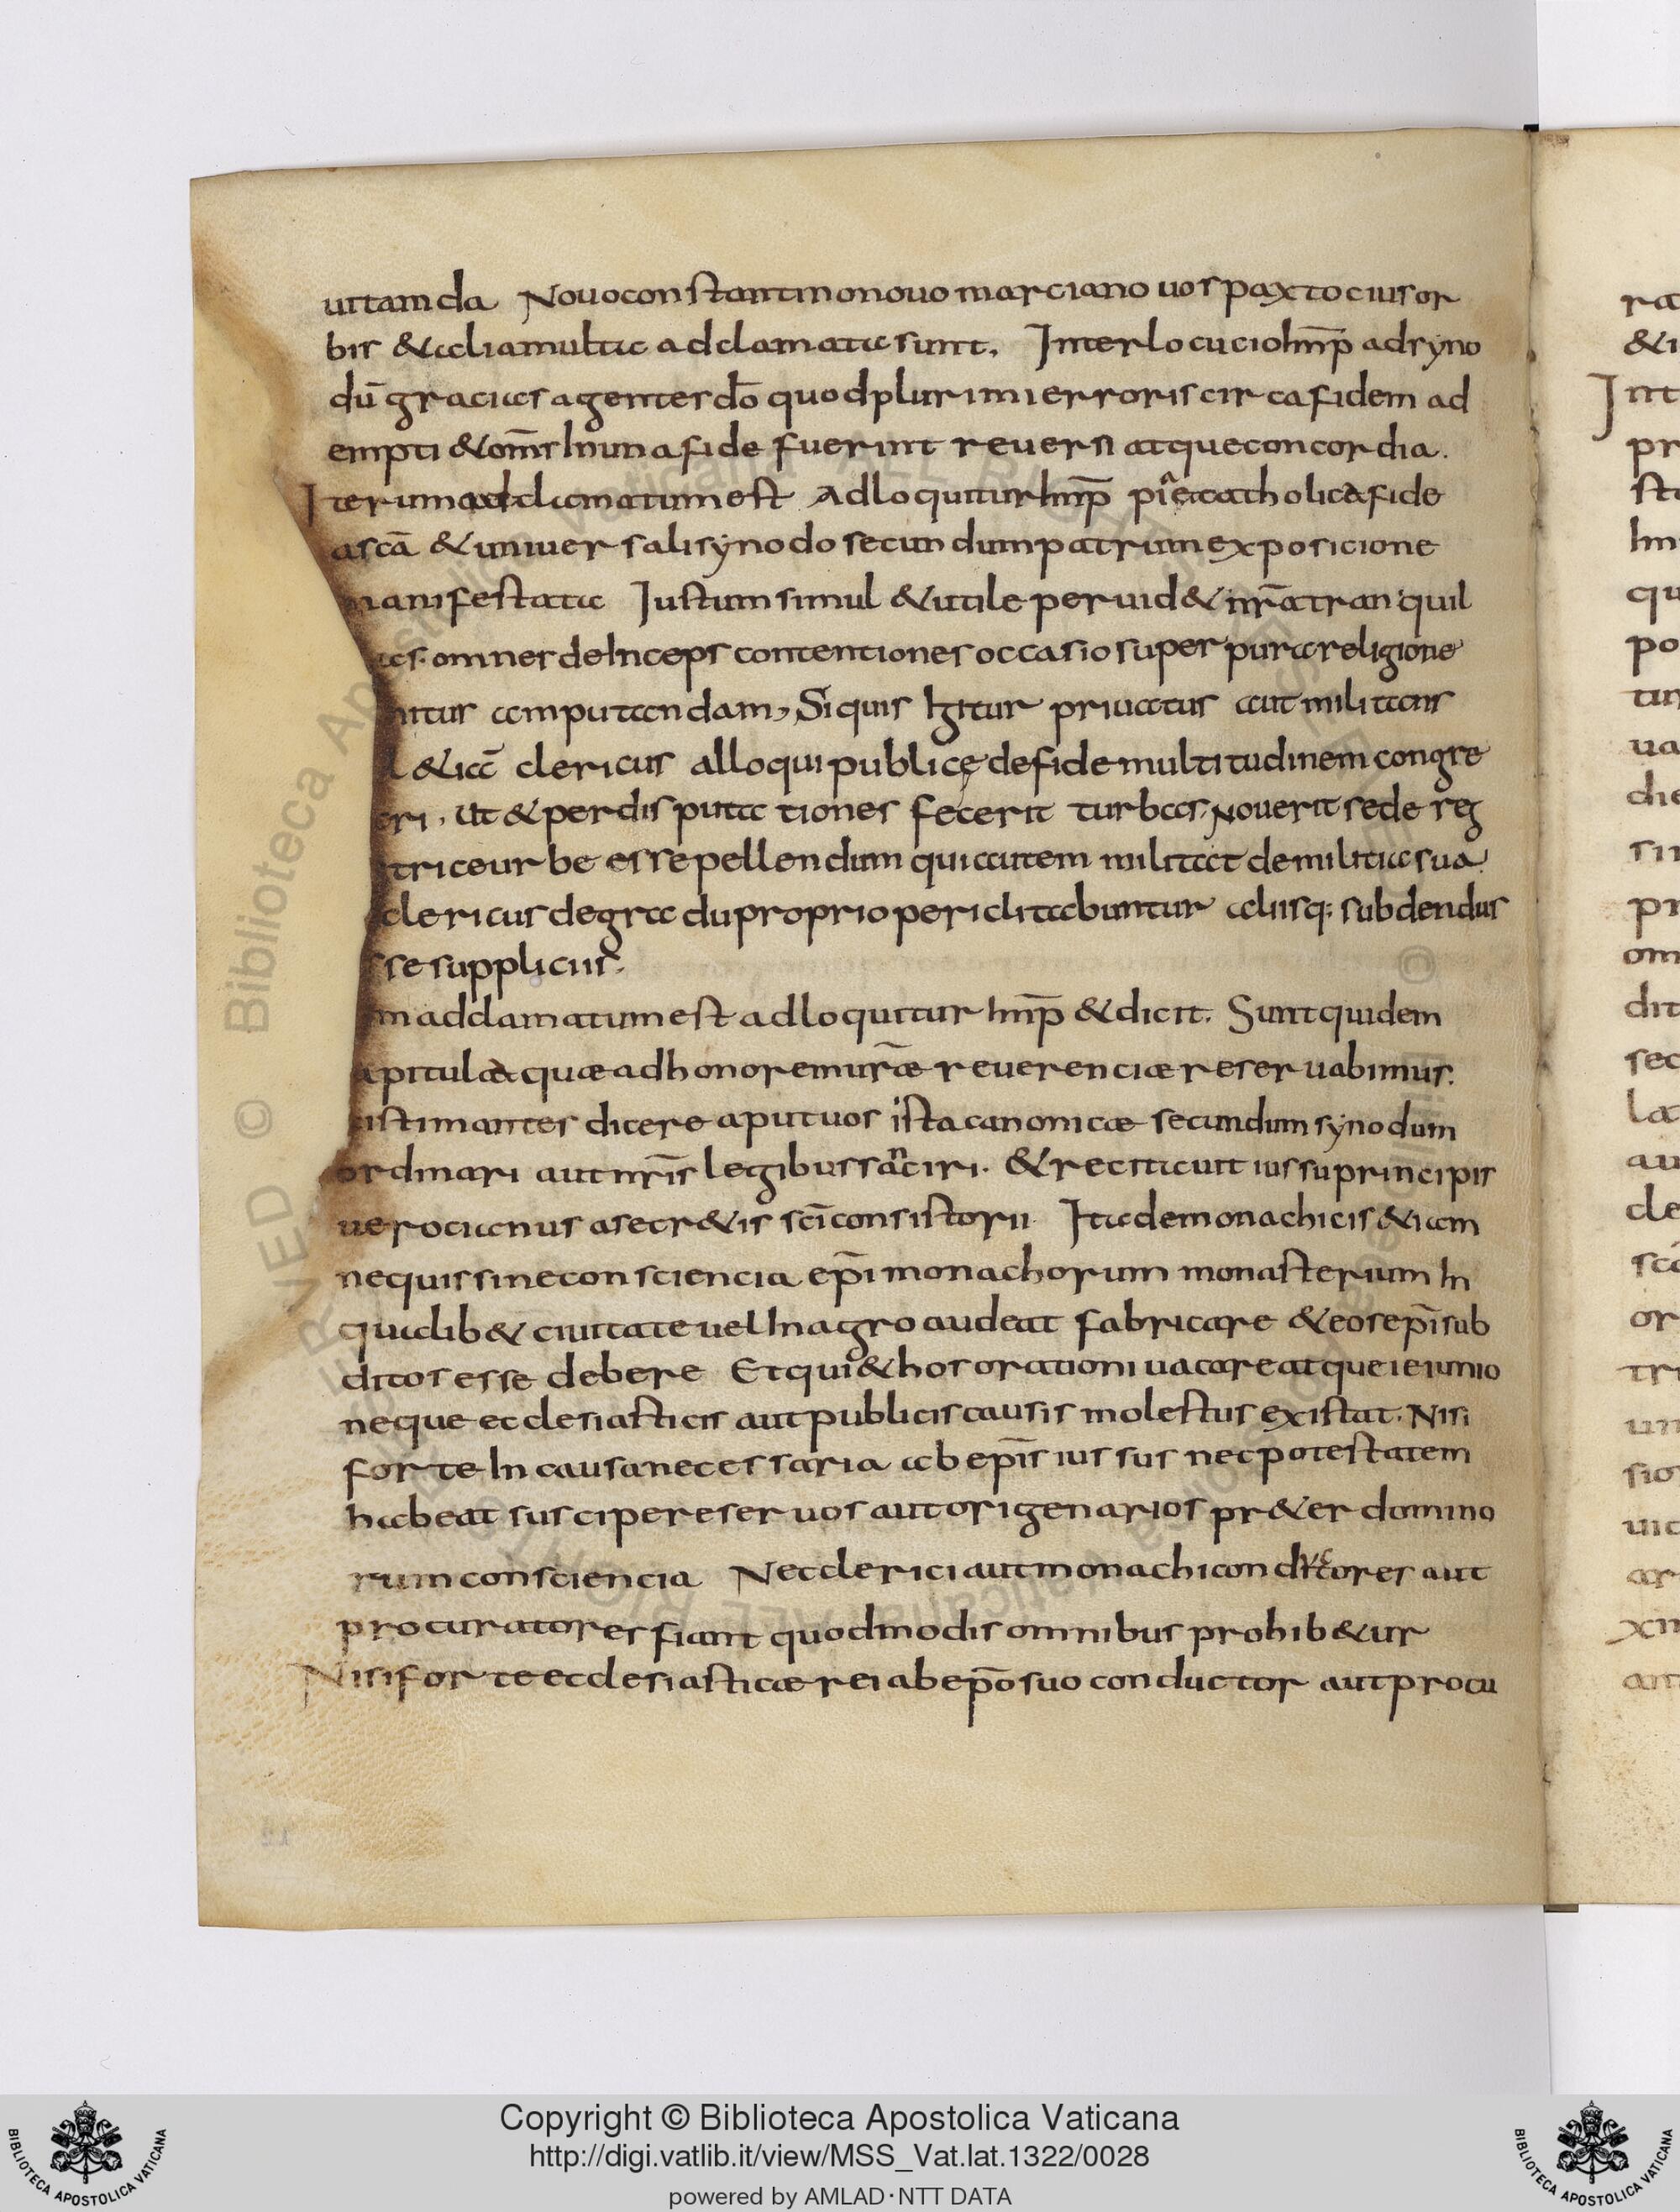 uitam da Nouo constantino nouo marciano uos pax tocius or
bis & alia multa adclamata sunt. Interlocucio Imp̄ ad syno
dū gracias agentes dō quod plurimi erroris circa fidem ad
empti & om̄s In una fide fuerint reuersi atque concordia.
Iterum adclamatum est Adloquitur Imp̄ catholica fide
a scā & uniuersali synodo secundum patrum exposicione
manifestata Iustum simul & utile peruid& nr̄a tranquil
as. omnes deInceps contentiones occasio super pura religione
itur amputandam, Si quis Igitur priuatus aut militans
l &iā clericus alloqui publicę de fide multitudinem congre
eri, ut & per disputationes fecerit turbas, Nouerit se de reg
trice urbe esse pellendum qui autem militat de militia sua
clericus de gradu proprio periclitabuntur aliisq; subdendus
sse suppliciis.
m adclamatum est adloquitur Imp̄ & dicit. Sunt quidem
apitula quæ ad honorem ur̄æ reuerenciæ reseruabimus.
istimantes dicere aput uos ista canonicæ secundum synodum
ordinari aut nr̄is legibus sanciri. & recitauit iussu principis
uerocianus a secr&is sc̄i consistorii Ita de monachicis &iam
ne quis sine consciencia ep̄i monachorum monasterium In
qualib& ciuitate uel In agro audeat fabricare & eos ep̄i sub
ditos esse debere Et qui&hos orationi uacare atque ieiunio
neque ecclesiasticis aut publicis causis molestus existat. Nisi
forte In causa necessaria ab ep̄is iussus nec potestatem
habeat suscipere seruos aut origenarios pr&er domino
rum consciencia Nec clerici aut monachi conductores aut
procuratores fiant quod modis omnibus prohib&ur
Nisi forte ecclesiasticæ rei ab ep̄o suo conductor aut procu
Copyright © Biblioteca Apostolica Vaticana
http://digi.vatlib.it/view/MSS_Vat.lat.1322/0028
powered by AMLAD·NTT DATA
BIBLIOTECA APOSTOLICA VATICANA
BIBLIOTECA APOSTOLICA VATICANA